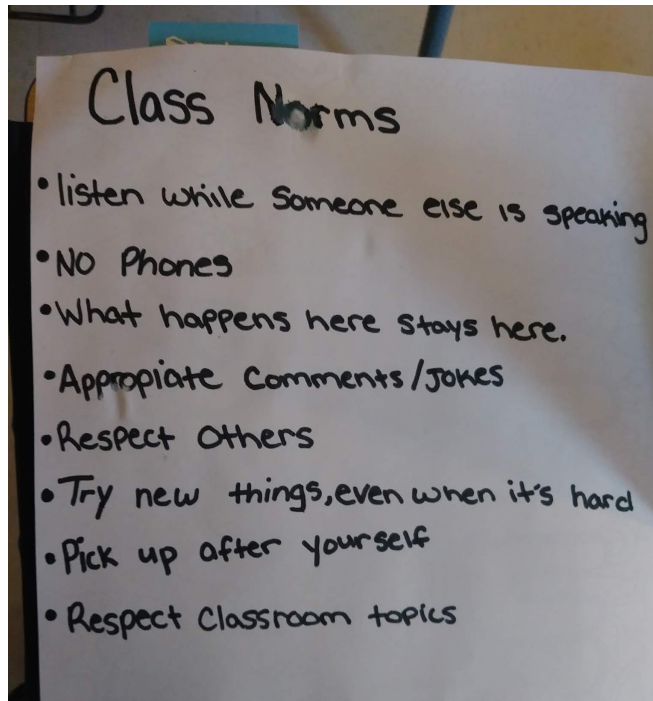 Class Norms
• listen while someone else is speaking
• NO Phones
• What happens here stays here.
• Appropiate comments/jokes
• Respect others
• Try new things, even when it's hard
• Pick up after yourself
• Respect classroom topics